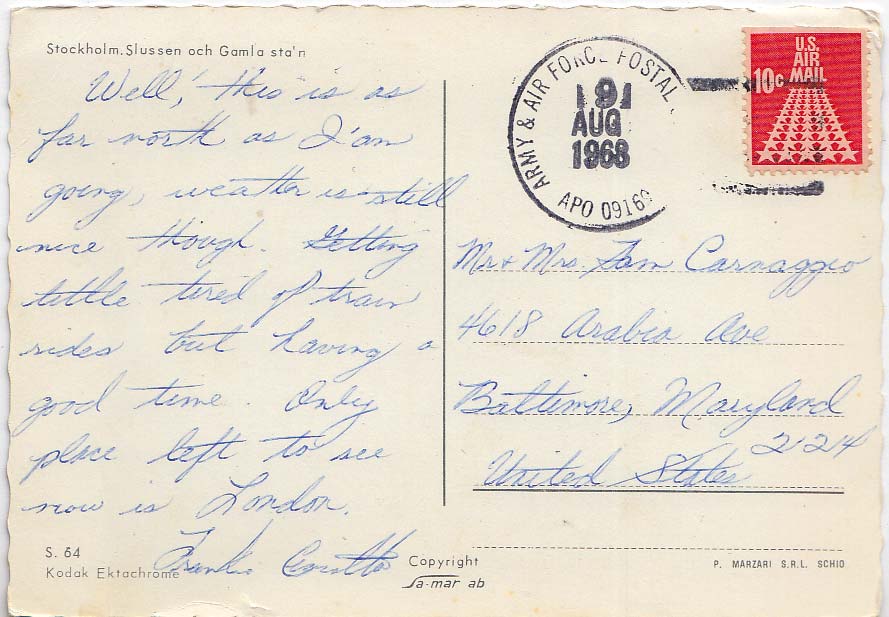 Stockholm. Slussen och Gamla sta'n
Well, this is as
far north as I'am
going, weather is still
nice though. Getting
little tired of train
rides but having a
good time. Only
place left to see
now is London.
Frankie
S. 64
Kodak Ektachrome
Copyright
Sa-mar ab
ARMY & AIR FORCE POSTAL
9
AUG
1968
APO 09169
U.S.
AIR
MAIL
10c
Mr & Mrs. Sam Carnaggio
4618 Arabia Ave
Baltimore, Maryland
21214
United States
P. MARZARI S.R.L. SCHIO